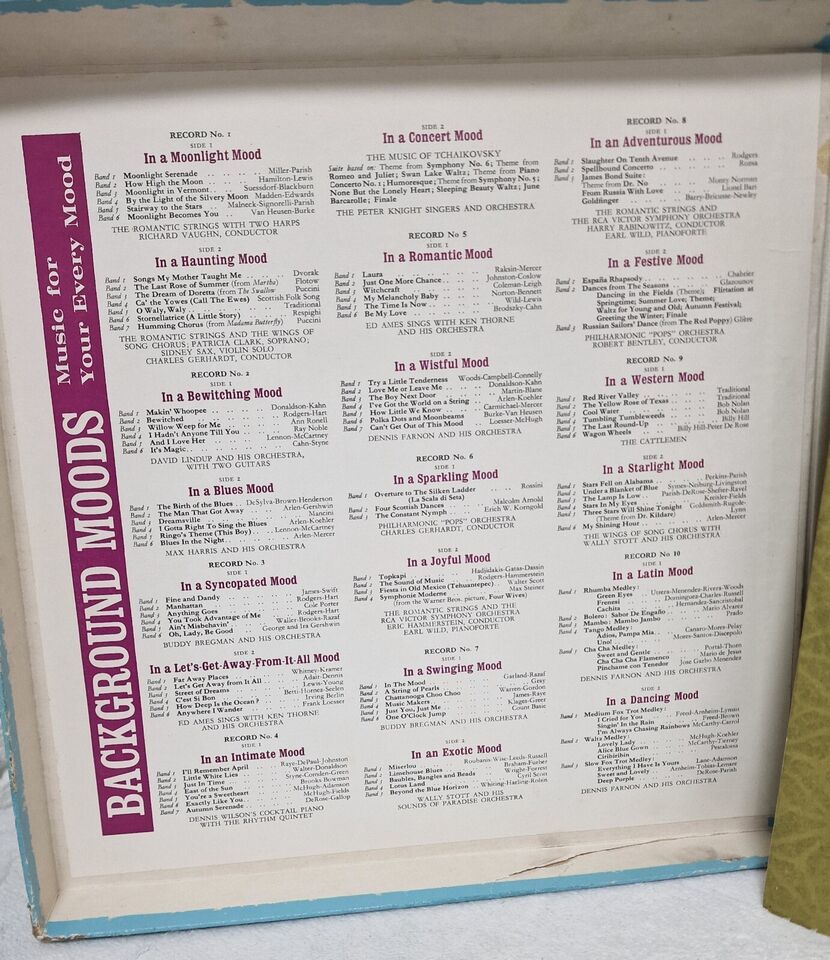 BACKGROUND MOODS
Music for
Your Every Mood
RECORD No. 1
SIDE 1
In a Moonlight Mood
Band 1 Moonlight Serenade . . . . Miller-Parish
Band 2 How High the Moon . . . . Hamilton-Lewis
Band 3 Moonlight in Vermont . . . Suessdorf-Blackburn
Band 4 By the Light of the Silvery Moon Madden-Edwards
Band 5 Stairway to the Stars . . Malneck-Signorelli-Parish
Band 6 Moonlight Becomes You . . Van Heusen-Burke
THE ROMANTIC STRINGS WITH TWO HARPS
RICHARD VAUGHN, CONDUCTOR
SIDE 2
In a Haunting Mood
Band 1 Songs My Mother Taught Me . . . . Dvorak
Band 2 The Last Rose of Summer (from Martha) Flotow
Band 3 The Dream of Doretta (from The Swallow Puccini
Band 4 Ca' the Yowes (Call the Ewes) Scottish Folk Song
Band 5 O Waly, Waly . . . . Traditional
Band 6 Stornellatrice (A Little Story) . . . Respighi
Band 7 Humming Chorus (from Madama Butterfly) Puccini
THE ROMANTIC STRINGS AND THE WINGS OF
SONG CHORUS; PATRICIA CLARK, SOPRANO;
SIDNEY SAX, VIOLIN SOLO
CHARLES GERHARDT, CONDUCTOR
RECORD No. 2
SIDE 1
In a Bewitching Mood
Band 1 Makin' Whoopee . . . . Donaldson-Kahn
Band 2 Bewitched . . . . Rodgers-Hart
Band 3 Willow Weep for Me . . . . Ann Ronell
Band 4 I Hadn't Anyone Till You . . . . Ray Noble
Band 5 And I Love Her . . . . Lennon-McCartney
Band 6 It's Magic . . . . Cahn-Styne
DAVID LINDUP AND HIS ORCHESTRA,
WITH TWO GUITARS
SIDE 2
In a Blues Mood
Band 1 The Birth of the Blues . . DeSylva-Brown-Henderson
Band 2 The Man That Got Away . . . . Arlen-Gershwin
Band 3 Dreamsville . . . . Mancini
Band 4 I Gotta Right To Sing the Blues . . Arlen-Koehler
Band 5 Ringo's Theme (This Boy) . . Lennon-McCartney
Band 6 Blues In the Night . . . . Arlen-Mercer
MAX HARRIS AND HIS ORCHESTRA
RECORD No. 3
SIDE 1
In a Syncopated Mood
Band 1 Fine and Dandy . . . . James-Swift
Band 2 Manhattan . . . . Rodgers-Hart
Band 3 Anything Goes . . . . Cole Porter
Band 4 You Took Advantage of Me . . . . Rodgers-Hart
Band 5 Ain't Misbehavin' . . . . Waller-Brooks-Razaf
Band 6 Oh, Lady, Be Good . . George and Ira Gershwin
BUDDY BREGMAN AND HIS ORCHESTRA
SIDE 2
In a Let's-Get-Away-From-It-All Mood
Band 1 Far Away Places . . . . Whitney-Kramer
Band 2 Let's Get Away from It All . . . . Adair-Dennis
Band 3 Street of Dreams . . . . Lewis-Young
Band 4 C'est Si Bon . . . . Betti-Hornez-Seelen
Band 5 How Deep Is the Ocean? . . . . Irving Berlin
Band 6 Anywhere I Wander . . . . Frank Loesser
ED AMES SINGS WITH KEN THORNE
AND HIS ORCHESTRA
RECORD No. 4
SIDE 1
In an Intimate Mood
Band 1 I'll Remember April . . Raye-DePaul-Johnston
Band 2 Little White Lies . . . . Walter-Donaldson
Band 3 Just In Time . . . . Styne-Comden-Green
Band 4 East of the Sun . . . . Brooks Bowman
Band 5 You're a Sweetheart . . . . McHugh-Adamson
Band 6 Exactly Like You . . . . McHugh-Fields
Band 7 Autumn Serenade . . . . DeRose-Gallop
DENNIS WILSON'S COCKTAIL PIANO
WITH THE RHYTHM QUINTET
SIDE 2
In a Concert Mood
THE MUSIC OF TCHAIKOVSKY
Suite based on: Theme from Symphony No. 6; Theme from
Romeo and Juliet; Swan Lake Waltz; Theme from Piano
Concerto No. 1; Humoresque; Theme from Symphony No. 5;
None But the Lonely Heart; Sleeping Beauty Waltz; June
Barcarolle; Finale
THE PETER KNIGHT SINGERS AND ORCHESTRA
RECORD No 5
SIDE 1
In a Romantic Mood
Band 1 Laura . . . . Raksin-Mercer
Band 2 Just One More Chance . . . . Johnston-Coslow
Band 3 Witchcraft . . . . Coleman-Leigh
Band 4 My Melancholy Baby . . . . Norton-Bennett
Band 5 The Time Is Now . . . . Wild-Lewis
Band 6 Be My Love . . . . Brodszky-Cahn
ED AMES SINGS WITH KEN THORNE
AND HIS ORCHESTRA
SIDE 2
In a Wistful Mood
Band 1 Try a Little Tenderness Woods-Campbell-Connelly
Band 2 Love Me or Leave Me . . . . Donaldson-Kahn
Band 3 The Boy Next Door . . . . Martin-Blane
Band 4 I've Got the World on a String . . Arlen-Koehler
Band 5 How Little We Know . . . . Carmichael-Mercer
Band 6 Polka Dots and Moonbeams . . Burke-Van Heusen
Band 7 Can't Get Out of This Mood . . Loesser-McHugh
DENNIS FARNON AND HIS ORCHESTRA
RECORD No. 6
SIDE 1
In a Sparkling Mood
Band 1 Overture to The Silken Ladder . . . . Rossini
(La Scala di Seta)
Band 2 Four Scottish Dances . . . . Malcolm Arnold
Band 3 The Constant Nymph . . . . Erich W. Korngold
PHILHARMONIC "POPS" ORCHESTRA
CHARLES GERHARDT, CONDUCTOR
SIDE 2
In a Joyful Mood
Band 1 Topkapi . . . . Hadjidakis-Gatas-Dassin
Band 2 The Sound of Music . . Rodgers-Hammerstein
Band 3 Fiesta in Old Mexico (Tehuantepec) . Walter Scott
Band 4 Symphonie Moderne . . . . Max Steiner
(from the Warner Bros. picture, Four Wives)
THE ROMANTIC STRINGS AND THE
RCA VICTOR SYMPHONY ORCHESTRA
ERIC HAMMERSTEIN, CONDUCTOR
EARL WILD, PIANOFORTE
RECORD No. 7
SIDE 1
In a Swinging Mood
Band 1 In The Mood . . . . Garland-Razaf
Band 2 A String of Pearls . . . . Grey
Band 3 Chattanooga Choo Choo . . Warren-Gordon
Band 4 Music Makers . . . . James-Raye
Band 5 Just You, Just Me . . . . Klages-Greer
Band 6 One O'Clock Jump . . . . Count Basie
BUDDY BREGMAN AND HIS ORCHESTRA
SIDE 2
In an Exotic Mood
Band 1 Miserlou . . Roubanis-Wise-Leeds-Russell
Band 2 Limehouse Blues . . . . Braham-Furber
Band 3 Baubles, Bangles and Beads . . Wright-Forrest
Band 4 Lotus Land . . . . Cyril Scott
Band 5 Beyond the Blue Horizon . . Whiting-Harling-Robin
WALLY STOTT AND HIS
SOUNDS OF PARADISE ORCHESTRA
RECORD No. 8
SIDE 1
In an Adventurous Mood
Band 1 Slaughter On Tenth Avenue . . . . Rodgers
Band 2 Spellbound Concerto . . . . Rozsa
Band 3 James Bond Suite:
Theme from Dr. No . . . . Monty Norman
From Russia With Love . . . . Lionel Bart
Goldfinger . . . . Barry-Bricusse-Newley
THE ROMANTIC STRINGS AND
THE RCA VICTOR SYMPHONY ORCHESTRA
HARRY RABINOWITZ, CONDUCTOR
EARL WILD, PIANOFORTE
SIDE 2
In a Festive Mood
Band 1 España Rhapsody . . . . Chabrier
Band 2 Dances from The Seasons . . . . Glazounov
Dancing in the Fields (Theme); Flirtation at
Springtime; Summer Love; Theme;
Waltz for Young and Old; Autumn Festival;
Greeting the Winter; Finale
Band 3 Russian Sailors' Dance (from The Red Poppy) Glière
PHILHARMONIC "POPS" ORCHESTRA
ROBERT BENTLEY, CONDUCTOR
RECORD No. 9
SIDE 1
In a Western Mood
Band 1 Red River Valley . . . . Traditional
Band 2 The Yellow Rose of Texas . . . . Traditional
Band 3 Cool Water . . . . Bob Nolan
Band 4 Tumbling Tumbleweeds . . . . Bob Nolan
Band 5 The Last Round-Up . . . . Billy Hill
Band 6 Wagon Wheels . . . . Billy Hill-Peter De Rose
THE CATTLEMEN
SIDE 2
In a Starlight Mood
Band 1 Stars Fell on Alabama . . . . Perkins-Parish
Band 2 Under a Blanket of Blue . . Symes-Neiburg-Livingston
Band 3 The Lamp Is Low . . Parish-DeRose-Shefter-Ravel
Band 4 Stars In My Eyes . . . . Kreisler-Fields
Band 5 Three Stars Will Shine Tonight . . Goldsmith-Rugolo-
(Theme from Dr. Kildare) Lynn
Band 6 My Shining Hour . . . . Arlen-Mercer
THE WINGS OF SONG CHORUS WITH
WALLY STOTT AND HIS ORCHESTRA
RECORD No 10
SIDE 1
In a Latin Mood
Band 1 Rhumba Medley:
Green Eyes . . Utrera-Menendez-Rivera-Woods
Frenesi . . . . Dominguez-Charles-Russell
Cachita . . . . Hernandez-Sancristobal
Band 2 Bolero: Sabor De Engaño . . . . Mario Alvarez
Band 3 Mambo: Mambo Jambo . . . . Prado
Band 4 Tango Medley:
Adios, Pampa Mia . . . . Canaro-Mores-Pelay
Uno! . . . . Mores-Santos-Discepolo
Band 5 Cha Cha Medley:
Sweet and Gentle . . . . Portal-Thorn
Cha Cha Cha Flamenco . . . . Mario de Jesus
Pinchame con Tenedor . . Jose Garbo Menendez
DENNIS FARNON AND HIS ORCHESTRA
SIDE 2
In a Dancing Mood
Band 1 Medium Fox Trot Medley:
I Cried for You . . . . Freed-Arnheim-Lyman
Singin' In the Rain . . . . Freed-Brown
I'm Always Chasing Rainbows McCarthy-Carrol
Band 2 Waltz Medley:
Lovely Lady . . . . McHugh-Koehler
Alice Blue Gown . . . . McCarthy-Tierney
Ciribiribin . . . . Pestalozza
Band 3 Slow Fox Trot Medley:
Everything I Have Is Yours . . . . Lane-Adamson
Sweet and Lovely . . Arnheim-Tobias-Lemare
Deep Purple . . . . DeRose-Parish
DENNIS FARNON AND HIS ORCHESTRA